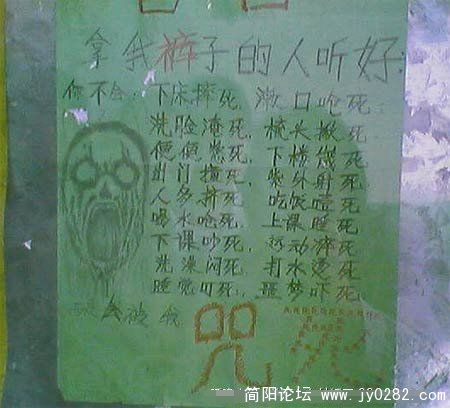 拿我裤子的人听好:
你不会: 下床摔死, 漱口呛死
洗脸淹死, 梳 死
便便憋死, 下楼 死
出门横死, 紫外射死
人多挤死, 吃饭噎死
喝水呛死, 上课睡死
下课吵死, 运动瘁死
洗澡闷死, 打水烫死
睡觉叮死, 噩梦吓死
会被我 咒死
简阳论坛 www.jy0282.com